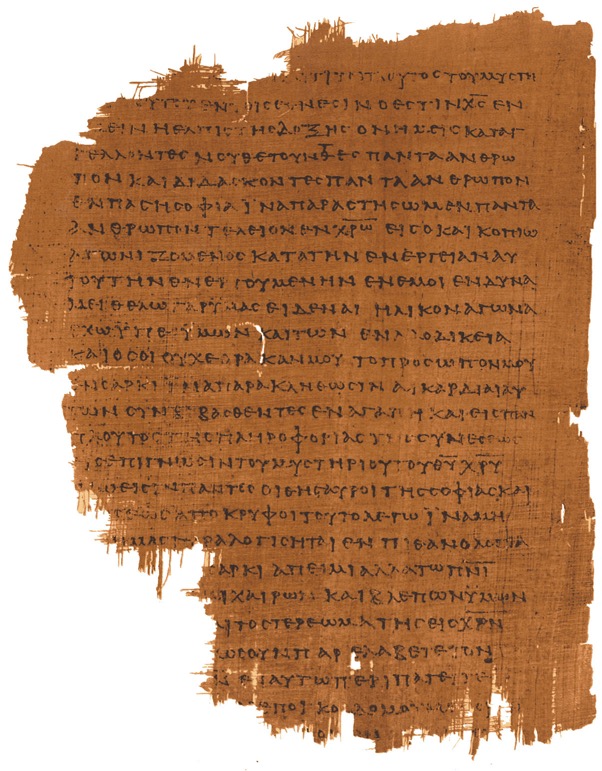 ΤΙ ΤΟ ΠΛΟΥΤΟϹ ΤΟΥ ΜΥϹΤΗ
ΕΝ ΤΟΙϹ ΕΘΝΕϹΙΝ Ο ΕϹΤΙΝ Χ̅Ϲ̅ ΕΝ
Η ΕΛΠΙϹ ΤΗϹ ΔΟΞΗϹ ΟΝ ΗΜΕΙϹ ΚΑΤΑΓ
ΓΕΛΛΟΝΤΕϹ ΝΟΥΘΕΤΟΥΝΤΕϹ ΠΑΝΤΑ ΑΝΘΡΩ
ΠΟΝ ΚΑΙ ΔΙΔΑϹΚΟΝΤΕϹ ΠΑΝΤΑ ΑΝΘΡΩΠΟΝ
ΕΝ ΠΑϹΗ ϹΟΦΙΑ ΪΝΑ ΠΑΡΑϹΤΗϹΩΜΕΝ ΠΑΝΤΑ
ΑΝΘΡΩΠΟΝ ΤΕΛΕΙΟΝ ΕΝ Χ̅Ρ̅Ω̅ ΕΙϹ Ο ΚΑΙ ΚΟΠΙΩ
ΑΓΩΝΙΖΟΜΕΝΟϹ ΚΑΤΑ ΤΗΝ ΕΝΕΡΓΕΙΑΝ ΑΥ
ΤΟΥ ΤΗΝ ΕΝΕΡΓΟΥΜΕΝΗΝ ΕΝ ΕΜΟΙ ΕΝ ΔΥΝΑ
ΜΕΙ ΘΕΛΩ ΓΑΡ ΥΜΑϹ ΕΙΔΕΝΑΙ ΗΛΙΚΟΝ ΑΓΩΝΑ
ΕΧΩ ΥΠΕΡ ΥΜΩΝ ΚΑΙ ΤΩΝ ΕΝ ΛΑΟΔΙΚΕΙΑ
ΚΑΙ ΟϹΟΙ ΟΥΧ ΕΟΡΑΚΑΝ ΜΟΥ ΤΟ ΠΡΟϹΩΠΟΝ ΜΟΥ
ΕΝ ϹΑΡΚΙ ΪΝΑ ΠΑΡΑΚΛΗΘΩϹΙΝ ΑΙ ΚΑΡΔΙΑΙ ΑΥ
ΤΩΝ ϹΥΝΒΙΒΑϹΘΕΝΤΕϹ ΕΝ ΑΓΑΠΗ ΚΑΙ ΕΙϹ ΠΑΝ
ΠΛΟΥΤΟϹ ΤΗϹ ΠΛΗΡΟΦΟΡΙΑϹ ΤΗϹ ϹΥΝΕϹΕΩϹ
ΕΙϹ ΕΠΙΓΝΩϹΙΝ ΤΟΥ ΜΥϹΤΗΡΙΟΥ ΤΟΥ Θ̅Υ̅ Χ̅Ρ̅Υ̅
ΕΙϹΙΝ ΠΑΝΤΕϹ ΟΙ ΘΗϹΑΥΡΟΙ ΤΗϹ ϹΟΦΙΑϹ ΚΑΙ
ΑΠΟΚΡΥΦΟΙ ΤΟΥΤΟ ΛΕΓΩ ΪΝΑ ΜΗ
ΥΜΑϹ ΠΑΡΑΛΟΓΙϹΗΤΑΙ ΕΝ ΠΙΘΑΝΟΛΟΓΙΑ
ϹΑΡΚΙ ΑΠΕΙΜΙ ΑΛΛΑ ΤΩ Π̅Ν̅Ι̅
ΧΑΙΡΩΝ ΚΑΙ ΒΛΕΠΩΝ ΥΜΩΝ
ΤΟ ϹΤΕΡΕΩΜΑ ΤΗϹ ΕΙϹ Χ̅Ρ̅Ν̅
ΩϹ ΟΥΝ ΠΑΡΕΛΑΒΕΤΕ ΤΟΝ
ΕΝ ΑΥΤΩ ΠΕΡΙΠΑΤΕΙΤΕ
ΕΠΟΙΚΟΔΟΜΟΥ